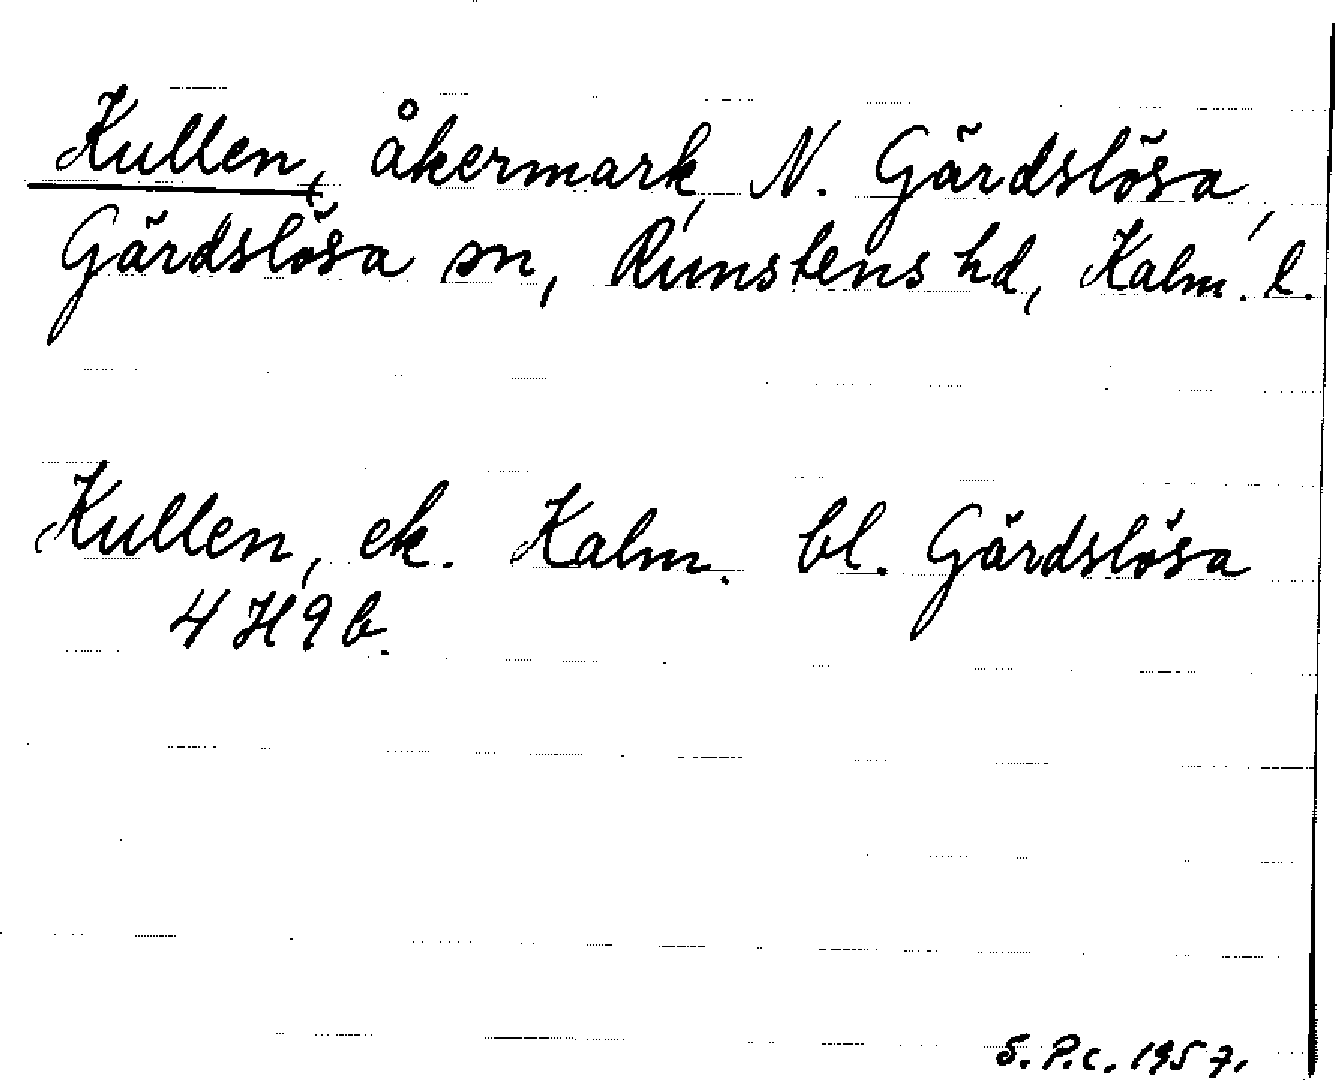 Kullen, åkermark, N. Gärdslösa,
Gärdslösa sn, Runstens hd, Kalm. l.
Kullen, ek. Kalm. bl. Gärdslösa
4 H 9 b.
S.P.C. 1957.